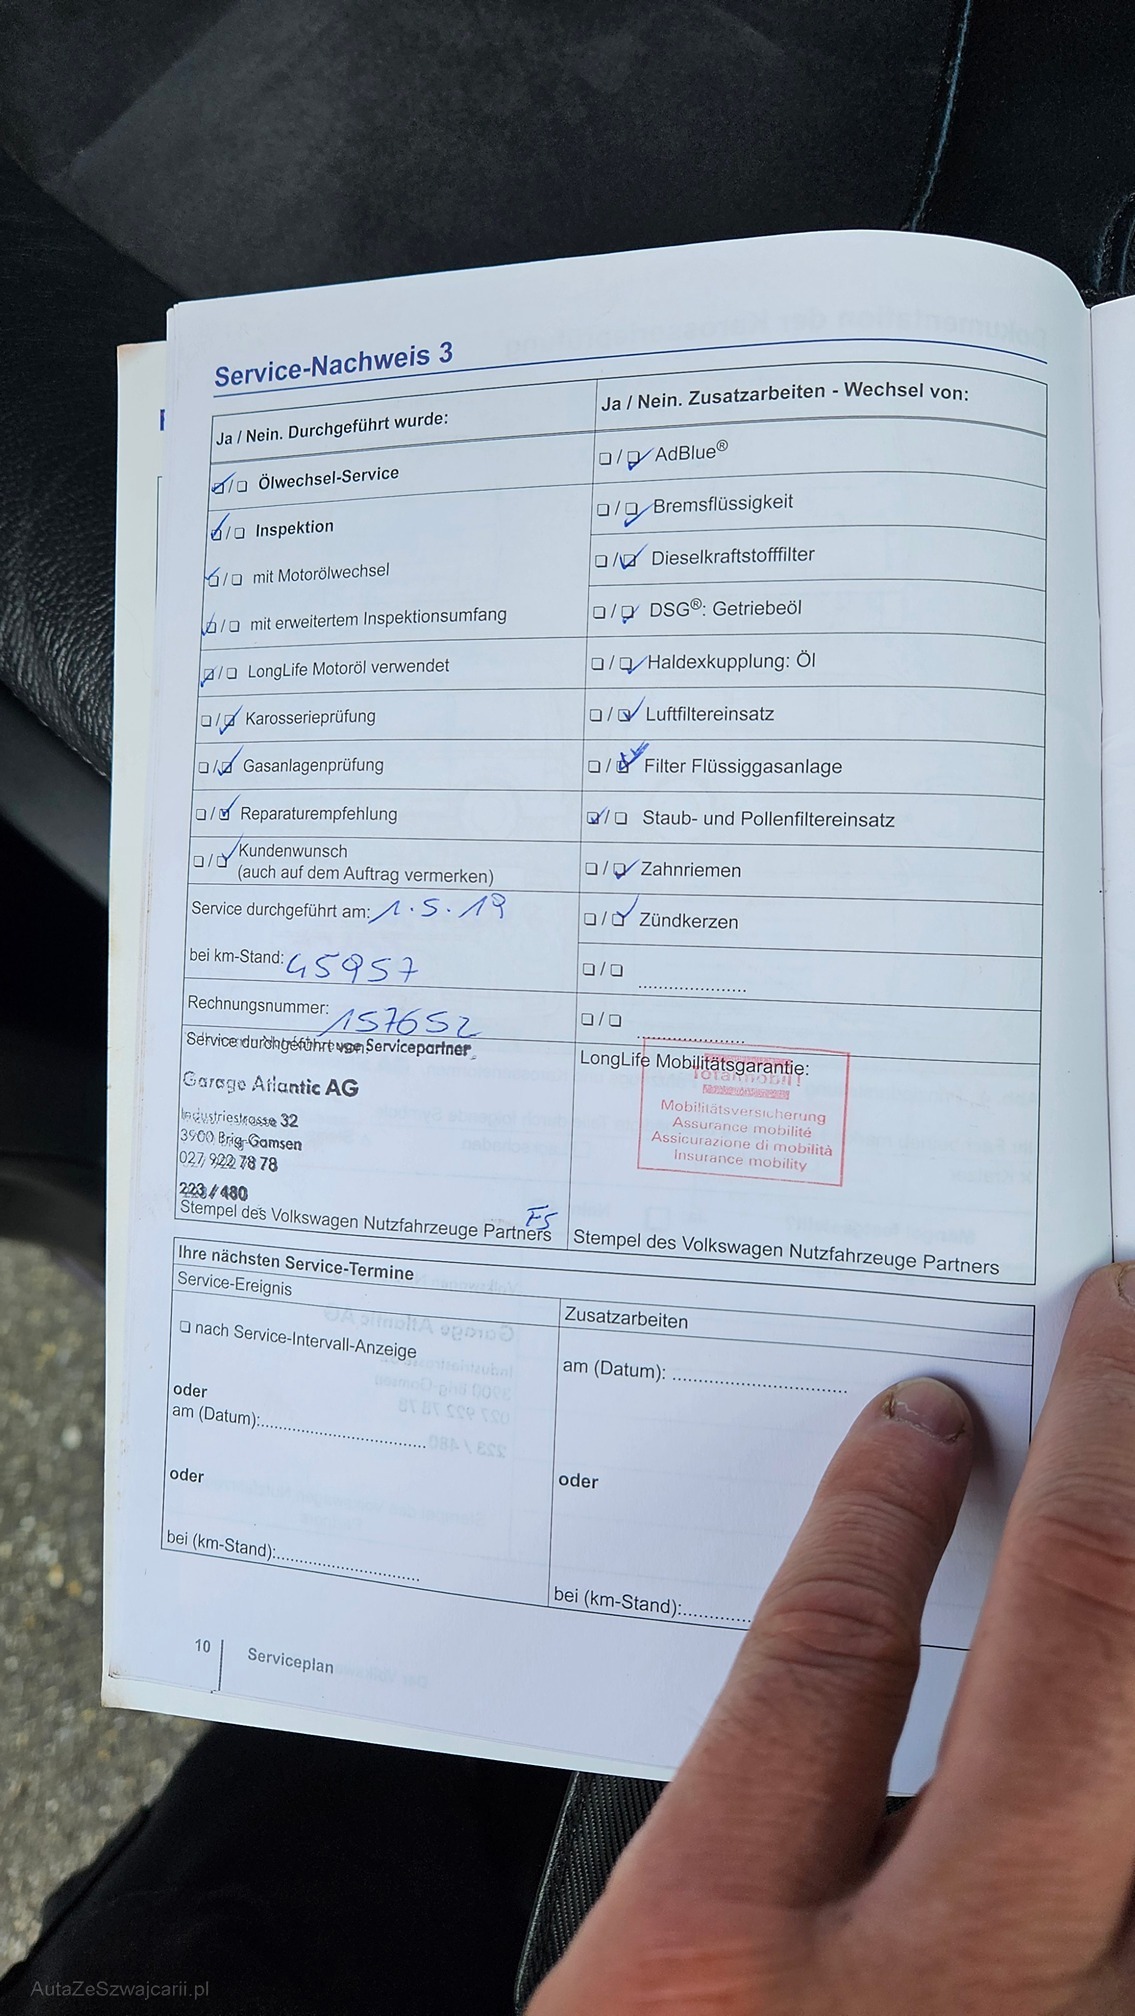 Service-Nachweis 3
Ja / Nein. Durchgeführt wurde:
Ölwechsel-Service
Inspektion
mit Motorölwechsel
mit erweitertem Inspektionsumfang
LongLife Motoröl verwendet
Karosserieprüfung
Gasanlagenprüfung
Reparaturempfehlung
Kundenwunsch
(auch auf dem Auftrag vermerken)
Service durchgeführt am: 1.5.19
bei km-Stand: 45957
Rechnungsnummer: 157652
Service durchgeführt von:
Servicepartner
Garage Atlantic AG
Industriestrasse 32
3900 Brig-Gamsen
027 922 78 78
223 / 480
FS
Stempel des Volkswagen Nutzfahrzeuge Partners
Ja / Nein. Zusatzarbeiten - Wechsel von:
AdBlue®
Bremsflüssigkeit
Dieselkraftstofffilter
DSG®: Getriebeöl
Haldexkupplung: Öl
Luftfiltereinsatz
Filter Flüssiggasanlage
Staub- und Pollenfiltereinsatz
Zahnriemen
Zündkerzen
LongLife Mobilitätsgarantie:
Totalmobil!
Mobilitätsversicherung
Assurance mobilité
Assicurazione di mobilità
Insurance mobility
Stempel des Volkswagen Nutzfahrzeuge Partners
Ihre nächsten Service-Termine
Service-Ereignis
nach Service-Intervall-Anzeige
oder
am (Datum):
oder
bei (km-Stand):
Zusatzarbeiten
am (Datum):
oder
bei (km-Stand):
10
Serviceplan
AutaZeSzwajcarii.pl